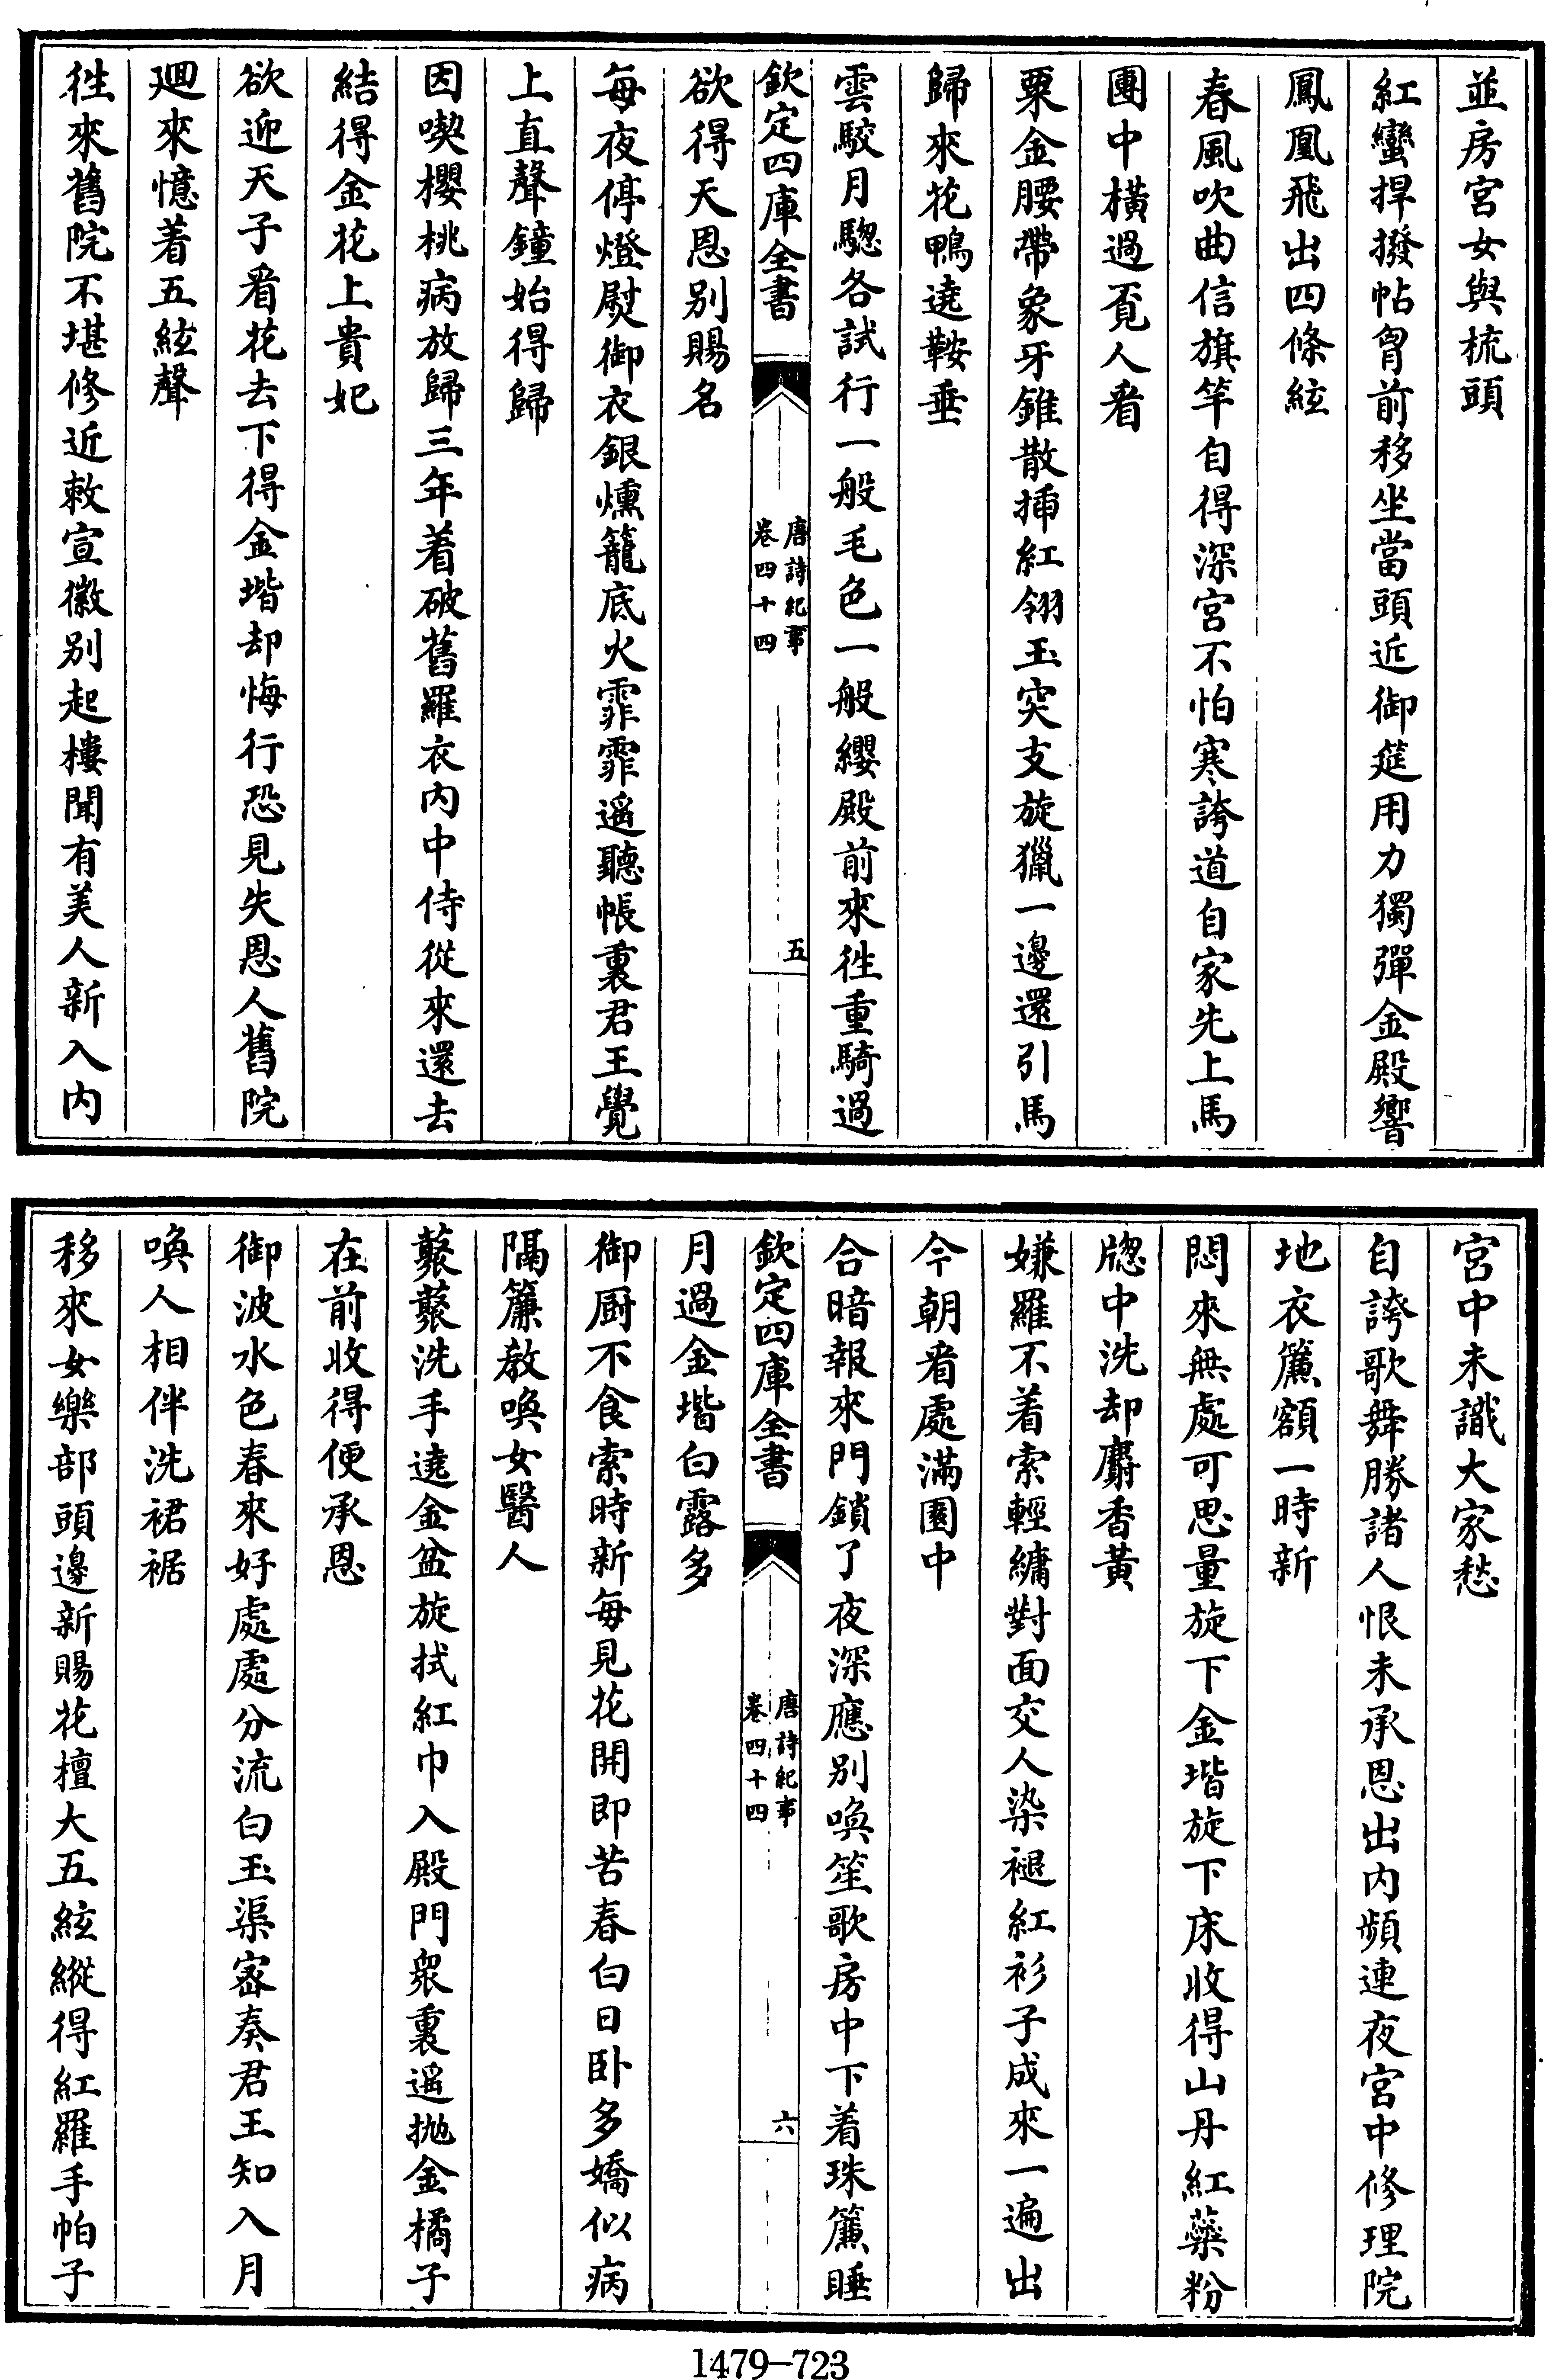 並房宮女與梳頭
紅蠻捍撥帖胷前移坐當頭近御筵用力獨彈金殿響
鳳凰飛出四條絃
春風吹曲信旗竿自得深宮不怕寒誇道自家先上馬
團中橫過覔人看
粟金腰帶象牙錐散揷紅翎玉突支旋獵一邊還引馬
歸來花鴨遶鞍垂
雲駮月驄各試行一般毛色一般纓殿前來徃重騎過
欽定四庫全書
唐詩紀事
卷四十四
五
欲得天恩别賜名
每夜停燈熨御衣銀燻籠底火霏霏遥聽帳裏君王覺
上直聲鐘始得歸
因喫櫻桃病放歸三年着破舊羅衣内中侍從來還去
結得金花上貴妃
欲迎天子看花去下得金堦却悔行恐見失恩人舊院
廻來憶着五絃聲
徃來舊院不堪修近敕宣徽别起樓聞有美人新入内
宮中未識大家愁
自誇歌舞勝諸人恨未承恩出内頻連夜宮中修理院
地衣簾額一時新
悶來無處可思量旋下金堦旋下床收得山丹紅蘂粉
牎中洗却麝香黃
嫌羅不着索輕縑對面交人染褪紅衫子成來一遍出
今朝看處滿園中
合暗報來門鎖了夜深應别喚笙歌房中下着珠簾睡
欽定四庫全書
唐詩紀事
卷四十四
六
月過金堦白露多
御厨不食索時新每見花開即苦春白日卧多嬌似病
隔簾教喚女醫人
藂藂洗手遶金盆旋拭紅巾入殿門衆裏遥抛金橘子
在前收得便承恩
御波水色春來好處處分流白玉渠密奏君王知入月
喚人相伴洗裙裾
移來女樂部頭邊新賜花檀大五絃縱得紅羅手帕子
1479—723